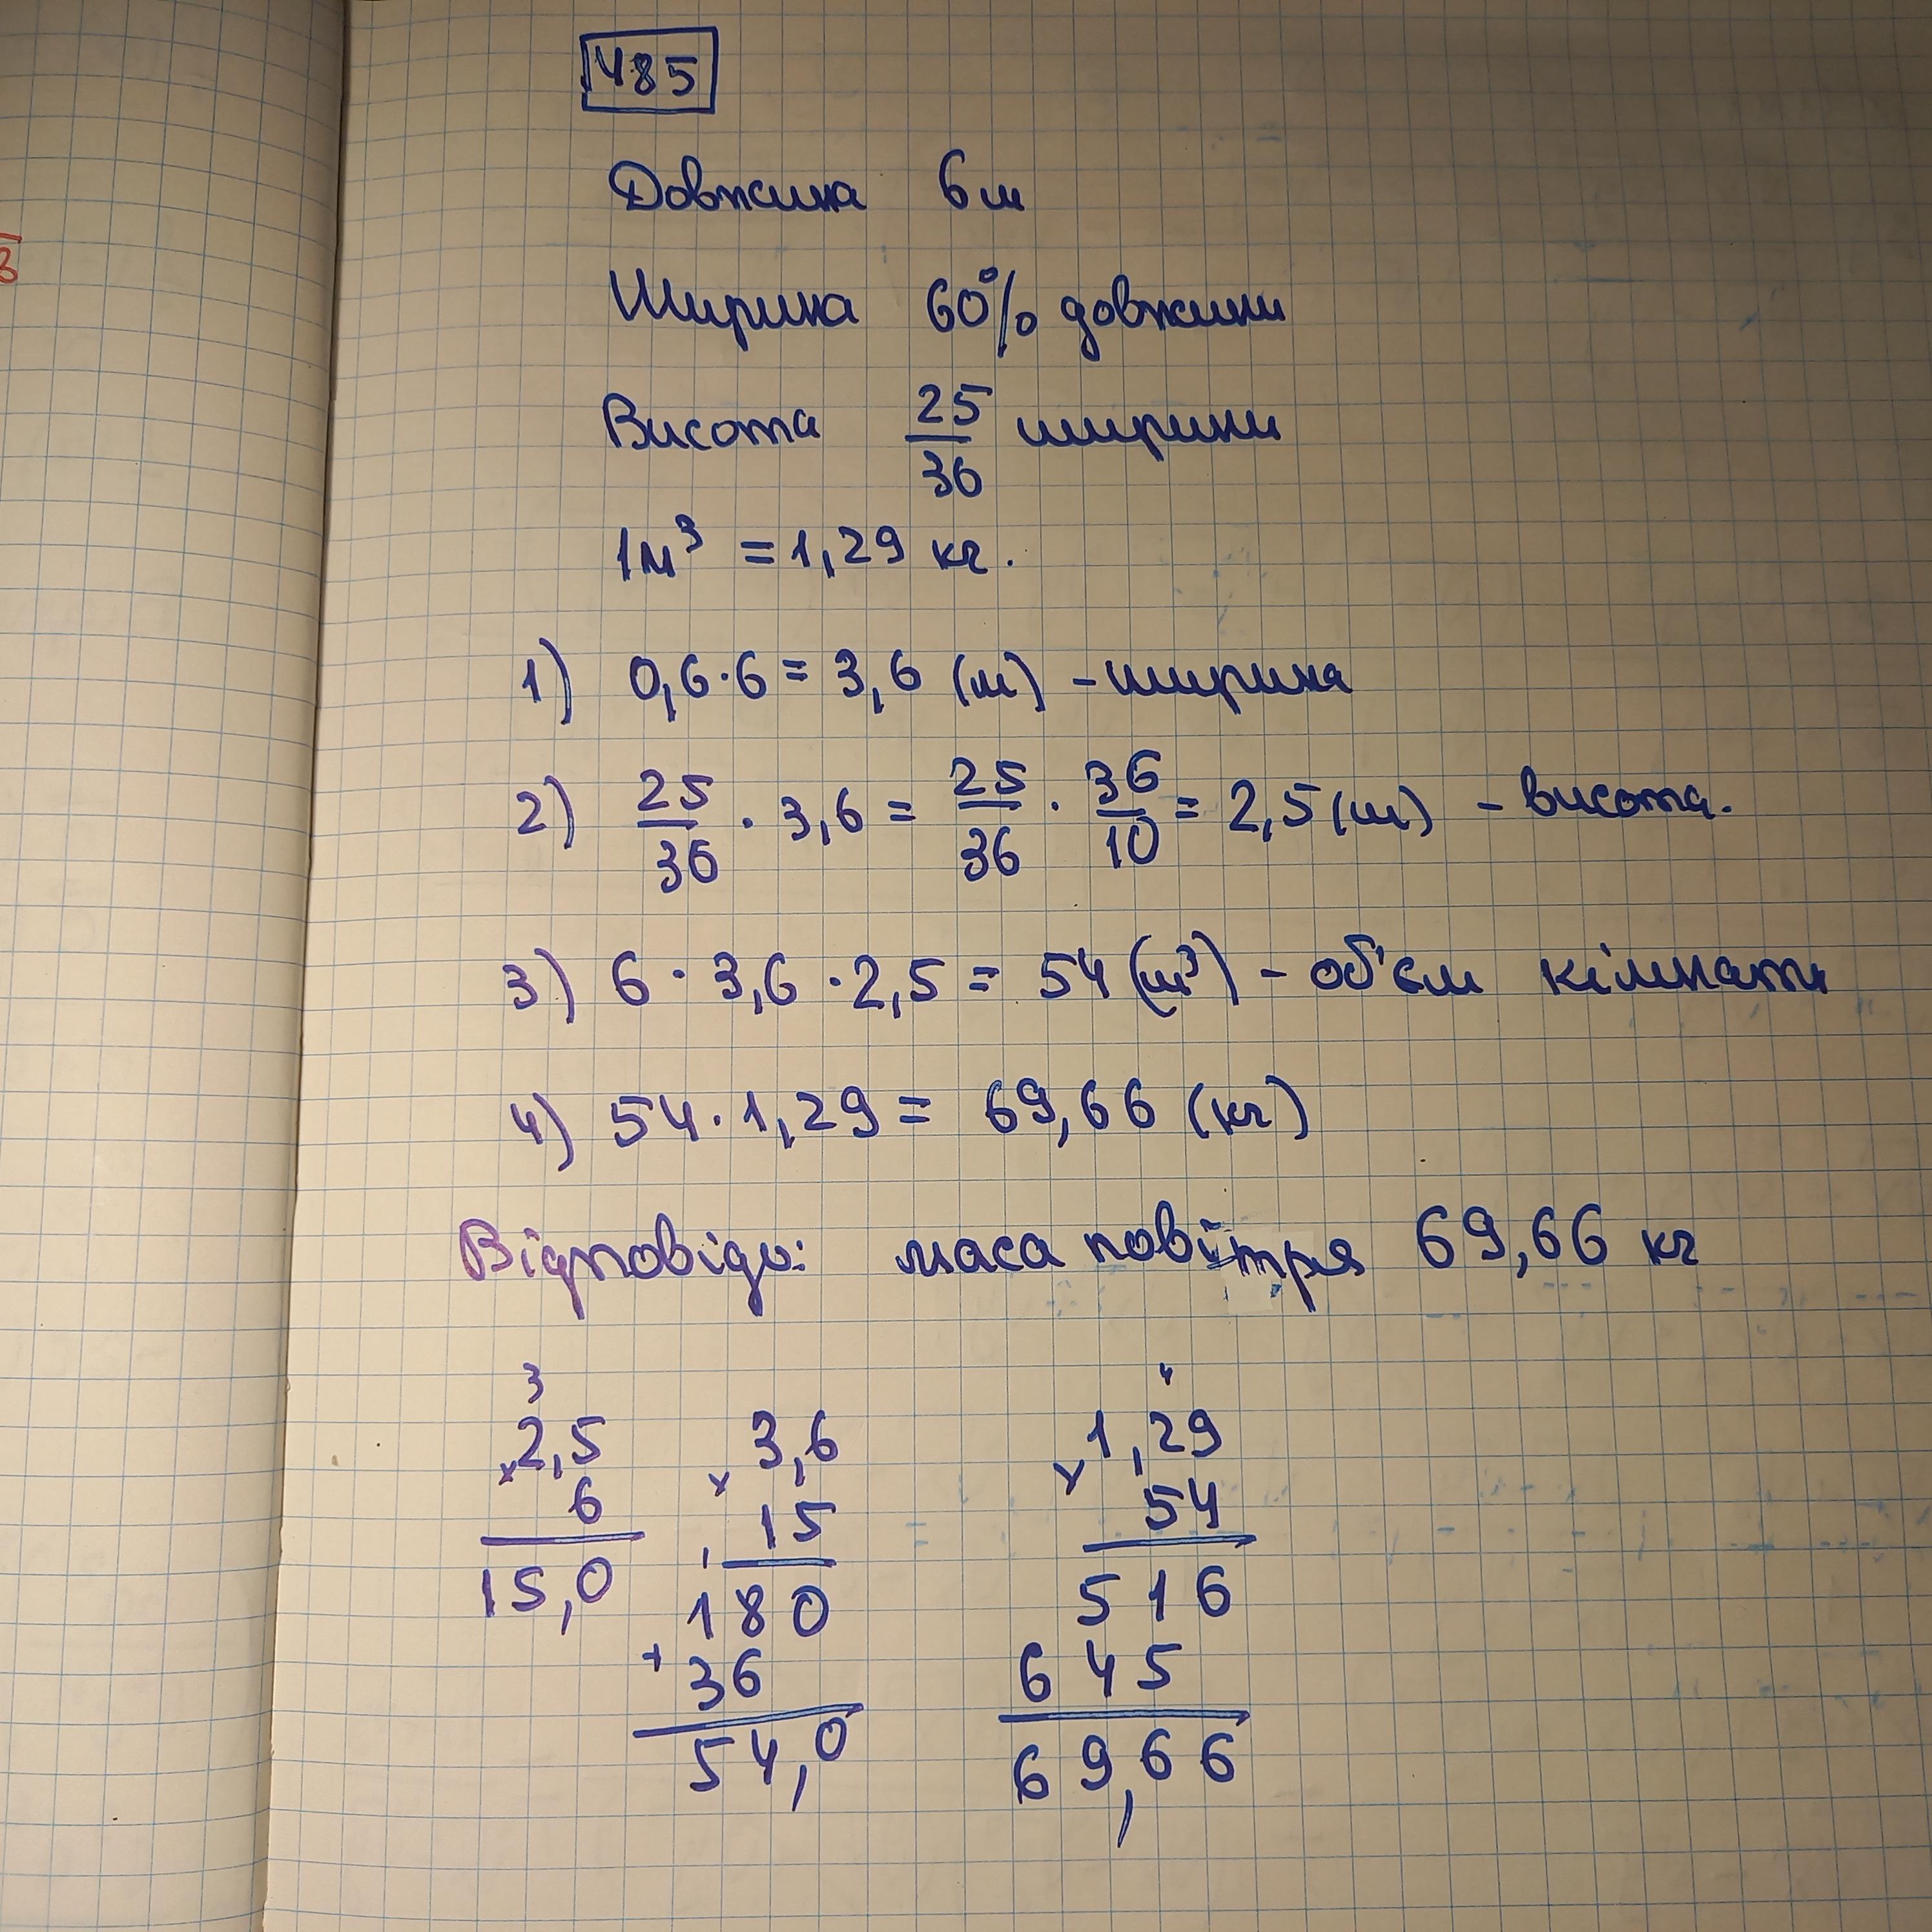 485
Довжина 6м
Ширина 60% довжини
Висота 25/36 ширини
1м³ = 1,29 кг.
1) 0,6·6 = 3,6 (м) - ширина
2) 25/36 · 3,6 = 25/36 · 36/10 = 2,5 (м) - висота.
3) 6 · 3,6 · 2,5 = 54 (м³) - об'єм кімнати
4) 54 · 1,29 = 69,66 (кг)
Відповідь: маса повітря 69,66 кг
3
2,5
× 6
15,0
3,6
× 15
180
+ 36
54,0
4
1,29
× 54
516
645
69,66